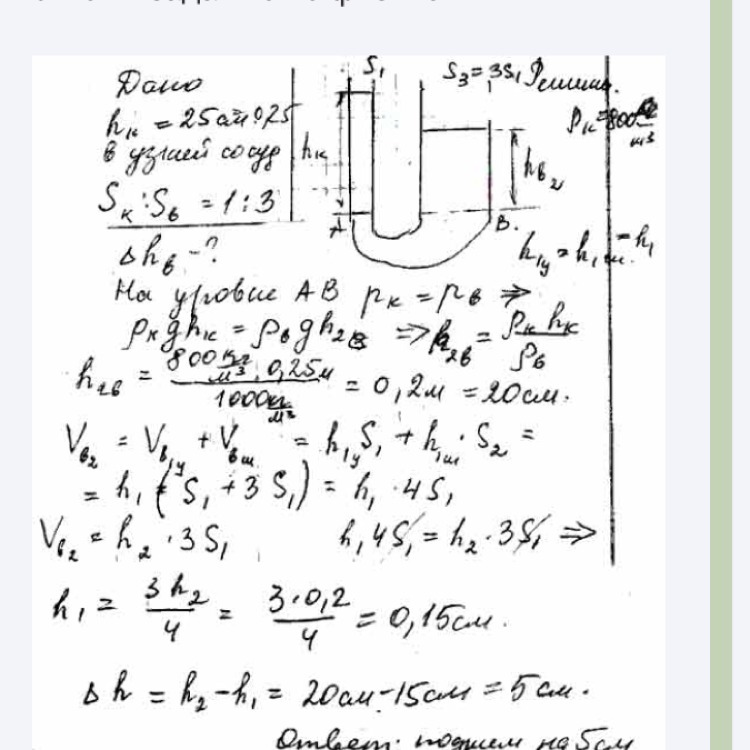 Дано
hк = 25см 0,25
в узкий сосуд
Sк : Sв = 1 : 3
Δhв - ?
S₁
S₃ = 3S₁ Решение.
ρк = 800 кг/м³
hк
hв₂
A
B.
h₁у = h₁ш = h₁
На уровне AB pк = pв ⇒
ρк g hк = ρв g h₂в ⇒ h₂в = ρк hк / ρв
h₂в = 800 кг/м³ · 0,25м / 1000 кг/м³ = 0,2м = 20см.
Vв₂ = Vв₁у + Vвш = h₁у S₁ + h₁ш · S₂ =
= h₁ (S₁ + 3S₁) = h₁ · 4S₁
Vв₂ = h₂ · 3S₁ h₁ 4S₁ = h₂ · 3S₁ ⇒
h₁ = 3h₂ / 4 = 3·0,2 / 4 = 0,15см.
Δh = h₂ - h₁ = 20см - 15см = 5см.
Ответ: на 5см